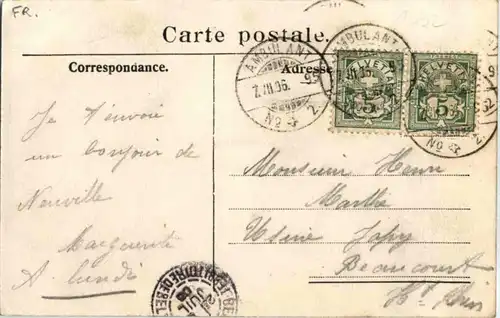 FR.
Carte postale.
Correspondance.
Adresse
AMBULANT
7.VII.06.
No 4
AMBULANT
HELVETIA
HELVETIA
5
5
No 4
Je t'envoie
un bonjour de
Neuville
Marguerite
A lundi
Monsieur Henri
Usine Japy
Beaucourt
Ht Rhin